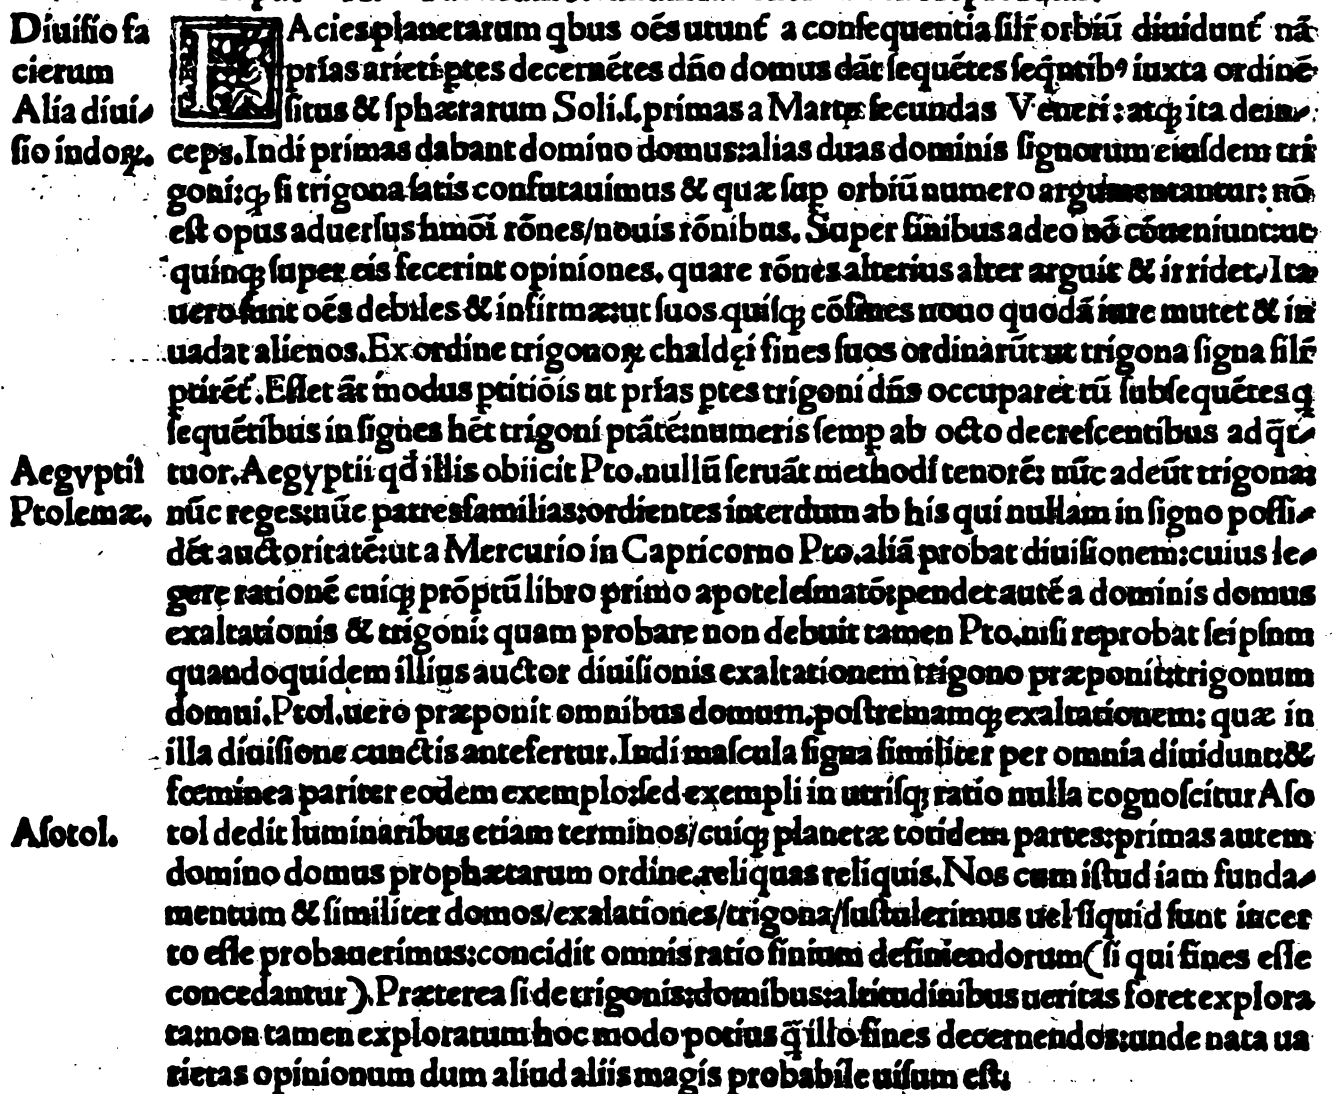 Diuisio fa
cierum
Alia diui-
sio indoꝝ.
FAcies planetarum qbus oẽs utunt᷑ a consequentia silr̃ orbiũ diuidunt᷑ nã
prĩas arieti ꝑtes decernẽtes dño domus dãt sequẽtes seq̃ntibꝰ iuxta ordinẽ
situs & sphærarum Soli.s.primas a Marte secundas Veneri: atqꝫ ita dein-
ceps.Indi primas dabant domino domus:alias duas dominis signorum eiusdem tri
goni:qꝫ si trigona satis confutauimus & quæ sup orbiũ numero argumentantur: nõ
est opus aduersus hmõi rõnes/nouis rõnibus. Super finibus adeo nõ cõueniunt:ut
quinqꝫ super eis fecerint opiniones. quare rões alterius alter arguit & irridet. Ita
uero sunt oẽs debiles & infirmæ:ut suos quisqꝫ cõfines nouo quodã iure mutet & in
uadat alienos.Ex ordine trigonoꝝ chaldęi fines suos ordinarũt ut trigona signa silr̃
ꝑtirẽt᷑. Esset ãt modus ꝑtitiõis ut prĩas ꝑtes trigoni dñs occuparet tũ subsequẽtes q
sequẽtibus in signes hẽt trigoni ptãtẽ:numeris semꝑ ab octo decrescentibus ad q̃t-
Aegyptii
tuor.Aegyptii qđ illis obiicit Pto.nullũ seruãt methodi tenorẽ: nũc adeũt trigona:
Ptolemæ.
nũc reges:nũc patresfamilias:ordientes interdum ab his qui nullam in signo possi-
dẽt auctoritatẽ:ut a Mercurio in Capricorno Pto.aliã probat diuisionem:cuius le-
gere rationẽ cuiqꝫ prõptũ libro primo apotelesmatõ:pendet autẽ a dominis domus
exaltationis & trigoni: quam probare non debuit tamen Pto.nisi reprobat seipsum
quandoquidem illius auctor diuisionis exaltationem trigono præponit:trigonum
domui.Ptol.uero præponit omnibus domum.postremamqꝫ exaltationem: quæ in
illa diuisione cunctis antefertur.Indi mascula signa similiter per omnia diuidunt:&
fœminea pariter eodem exemplo:sed exempli in utrisqꝫ ratio nulla cognoscitur Aso
Asotol.
tol dedit luminaribus etiam terminos/cuiqꝫ planetæ totidem partes:primas autem
domino domus prophætarum ordine.reliquas reliquis.Nos cum istud iam funda-
mentum & similiter domos/exalationes/trigona/sustulerimus uel siquid sunt incer
to esse probauerimus:concidit omnis ratio finium definiendorum(si qui fines esse
concedantur).Præterea si de trigonis:domibus:altitudinibus ueritas foret explora
ta:non tamen exploratum hoc modo potius q̃ illo fines decernendos:unde nata ua
rietas opinionum dum aliud aliis magis probabile uisum est: